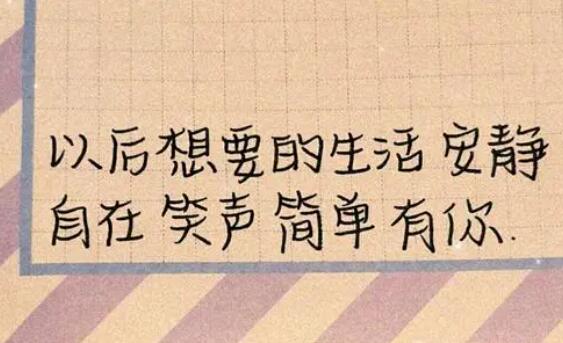 以后想要的生活 安静
自在 笑声 简单 有你.